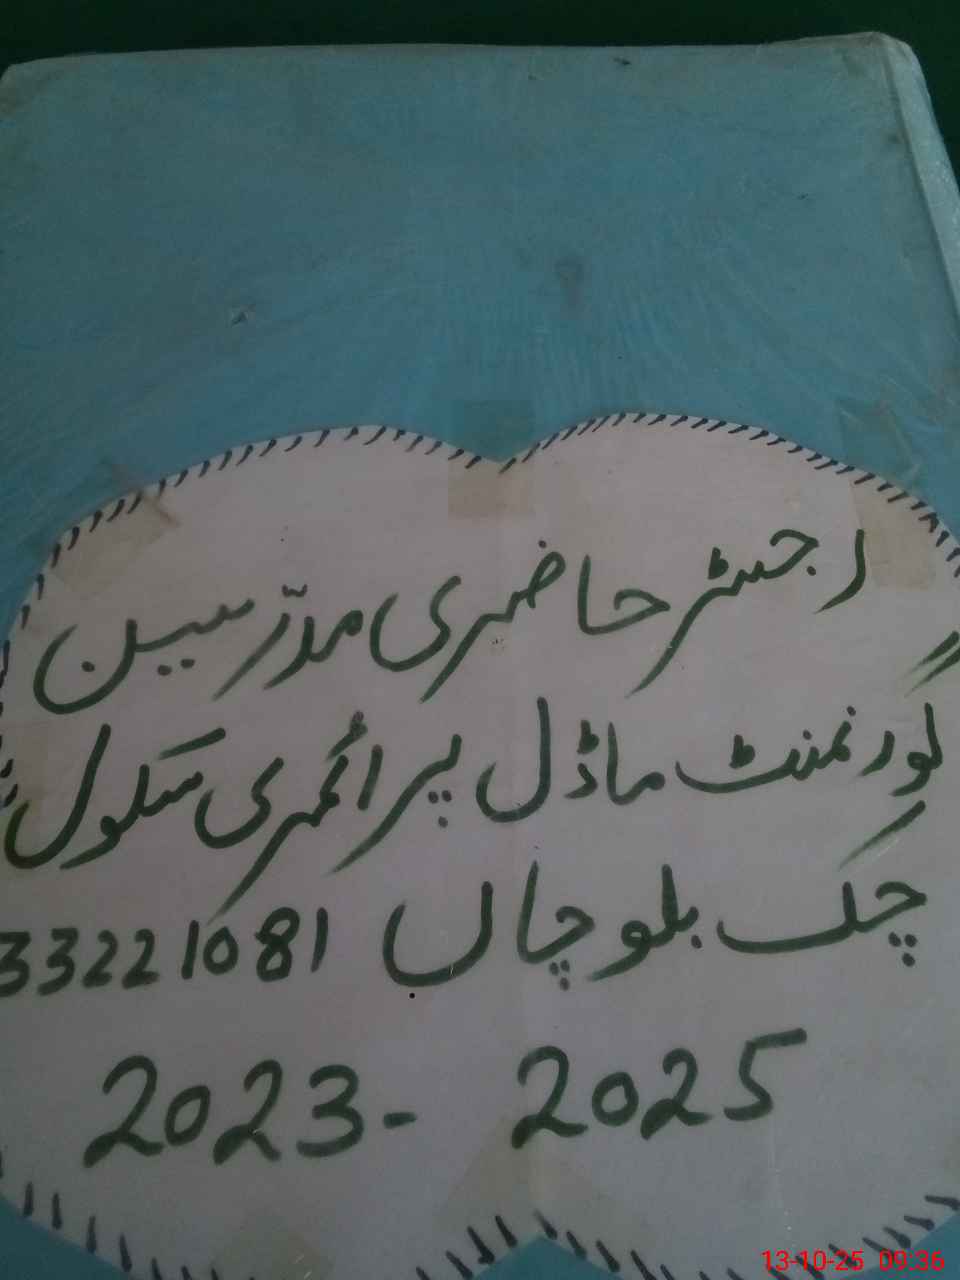 رجسٹر حاضری مدرّسین
گورنمنٹ ماڈل پرائمری سکول
چک بلوچاں 33221081
2023- 2025
13-10-25 09:36